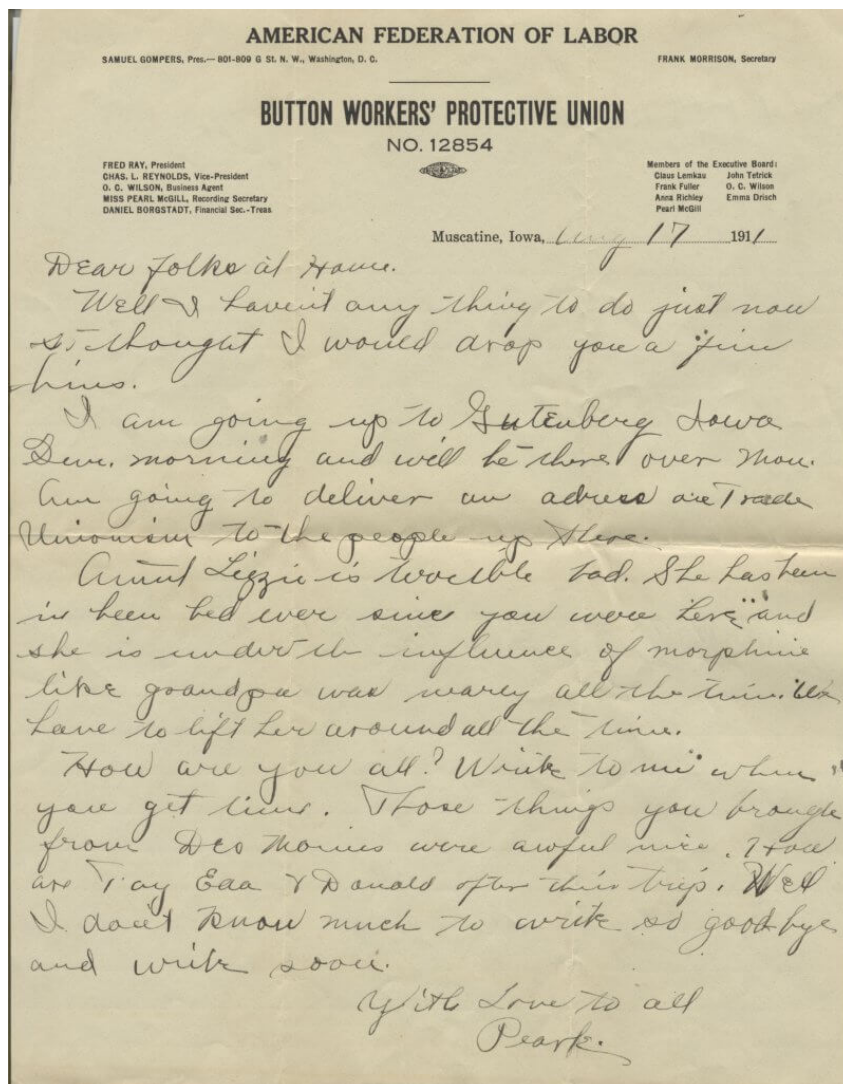 AMERICAN FEDERATION OF LABOR
SAMUEL GOMPERS, Pres.— 801-809 G St. N. W., Washington, D. C.
FRANK MORRISON, Secretary
BUTTON WORKERS' PROTECTIVE UNION
NO. 12854
FRED RAY, President
CHAS. L. REYNOLDS, Vice-President
O. C. WILSON, Business Agent
MISS PEARL McGILL, Recording Secretary
DANIEL BORGSTADT, Financial Sec.-Treas
Members of the Executive Board:
Claus Lemkau John Tetrick
Frank Fuller O. C. Wilson
Anna Richley Emma Drisch
Pearl McGill
Muscatine, Iowa, Aug 17 1911
Dear folks at Home.
Well I haven't any thing to do just now
so thought I would drop you a few
lines.
I am going up to Gutenberg Iowa
Sun. morning and will be there over Mon.
Am going to deliver an adress on Trade
Unionism to the people up there.
Aunt Lizzie is terrible bad. She has been
in been bed ever since you were here and
she is under the influence of morphine
like grandpa was nearly all the time. We
have to lift her around all the time.
How are you all? Write to me when
you get time. Those things you brough
from Des Moines were awful nice. How
are Fay Eda & Donald after their trip. Well
I don't know much to write so good bye
and write soon.
With Love to all
Pearl.